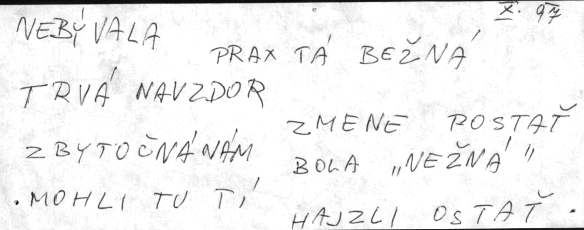 X. 97
NEBÝVALA
PRAX TÁ BEŽNÁ
TRVÁ NAVZDOR
ZMENE POSTAŤ
ZBYTOČNÁ NÁM
BOLA „NEŽNÁ”
. MOHLI TU TÍ
HAJZLI OSTAŤ .